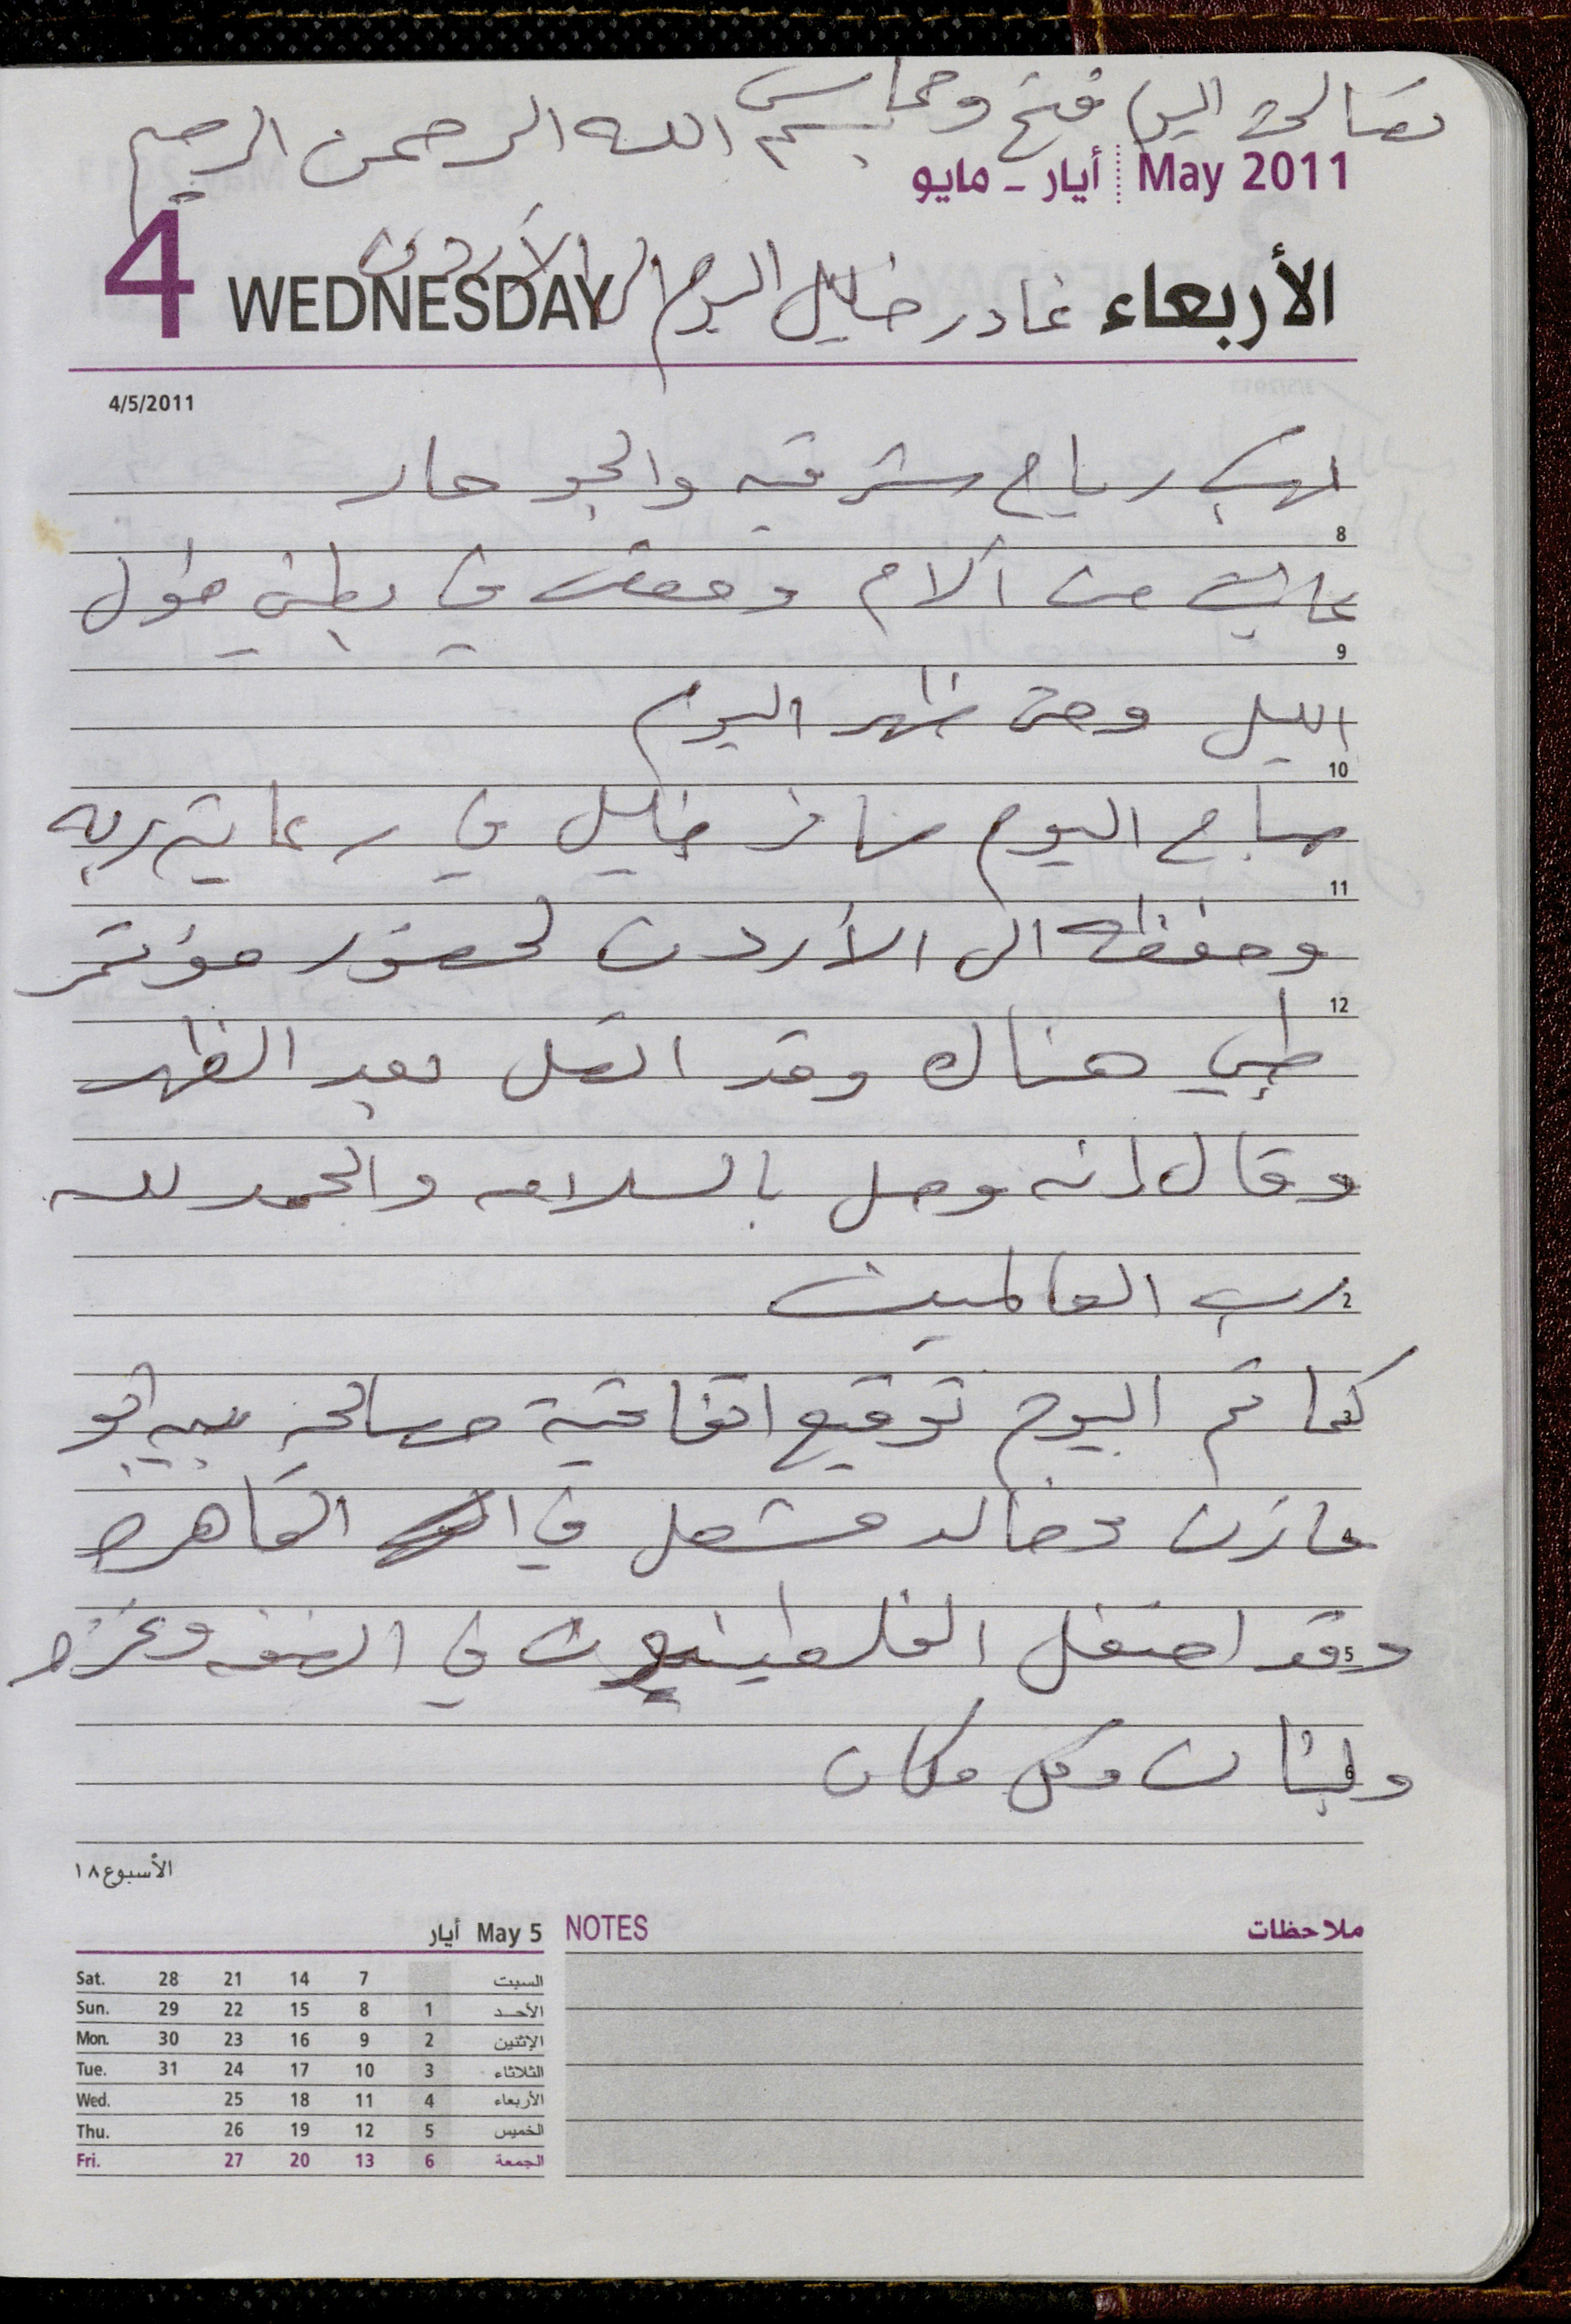 تصالح اليوم فتح وحماس
بسم الله الرحمن الرحيم
May 2011 أيار - مايو
4 WEDNESDAY الأربعاء
غادر خليل اليوم الى الأردن
4/5/2011
تهب رياح شرقيه والجو حار
8
عانيت من آلام ومغص في بطني طول
9
الليل وحتى ظهر اليوم
10
صباح اليوم سافر خليل في رعاية ربه
11
وحفظه الى الأردن لحضور مؤتمر
12
طبي هناك وقد اتصل بعد الظهر
وقال انه وصل بالسلامه والحمد لله
2
رب العالمين
3
كما تم اليوم توقيع اتفاقية مصالحه بين ابو
4
مازن وخالد مشعل في القاهره
5
وقد احتفل الفلسطينيون في الضفه وغزه
6
ولبنان وكل مكان
الأسبوع ١٨
ملاحظات NOTES
May 5 أيار
Sat. 28 21 14 7 السبت
Sun. 29 22 15 8 1 الأحد
Mon. 30 23 16 9 2 الإثنين
Tue. 31 24 17 10 3 الثلاثاء
Wed. 25 18 11 4 الأربعاء
Thu. 26 19 12 5 الخميس
Fri. 27 20 13 6 الجمعة